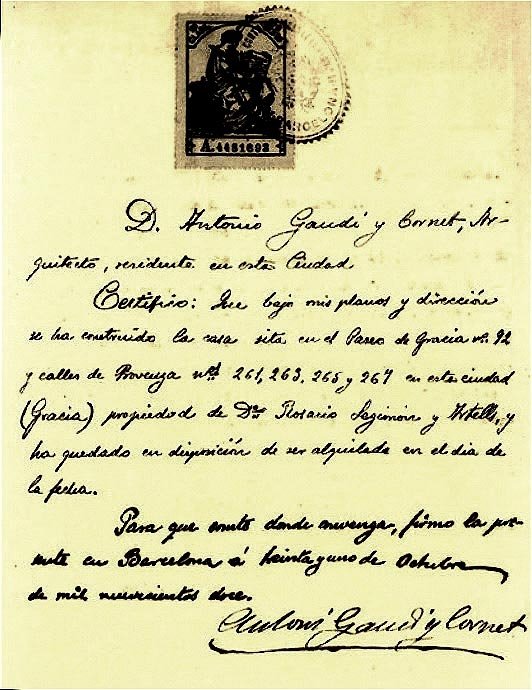 A.4451693
BARCELONA
D. Antonio Gaudí y Cornet, Ar-
quitecto, residente en esta Ciudad
Certifico: Que bajo mis planos y dirección
se ha construido la casa sita en el Paseo de Gracia nº. 92
y calles de Provenza nºs 261, 263, 265 y 267 en esta ciudad
(Gracia) propiedad de Dª Rosario Segimon y Artells, y
ha quedado en disposición de ser alquilada en el dia de
la fecha.
Para que conste donde convenga, firmo la pre-
sente en Barcelona á treinta y uno de Octubre
de mil novecientos doce.
Antoni Gaudí y Cornet